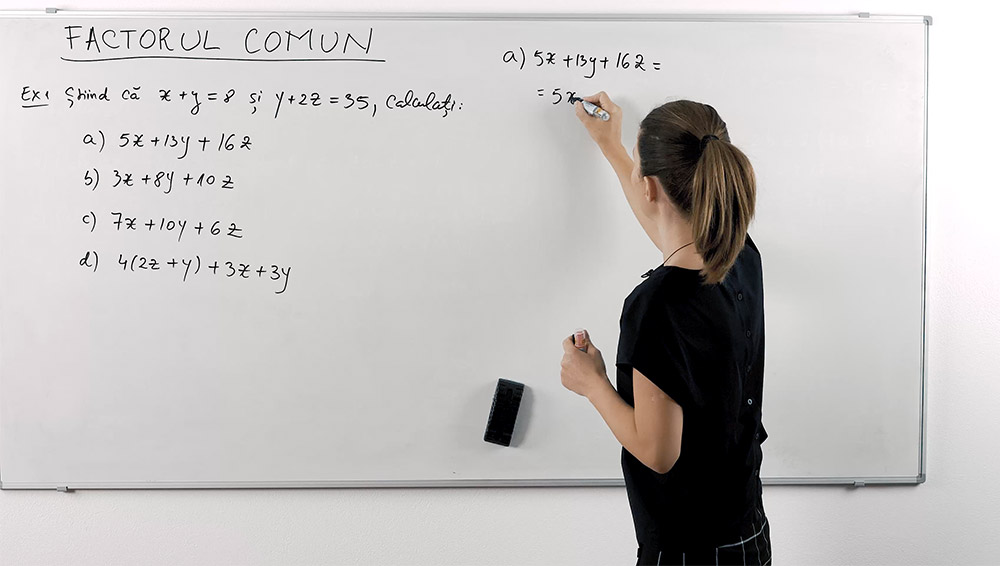 FACTORUL COMUN
Ex1 Știind că x+y=8 și y+2z=35, calculați:
a) 5x+13y+16z
b) 3x+8y+10z
c) 7x+10y+6z
d) 4(2z+y)+3x+3y
a) 5x+13y+16z=
=5x